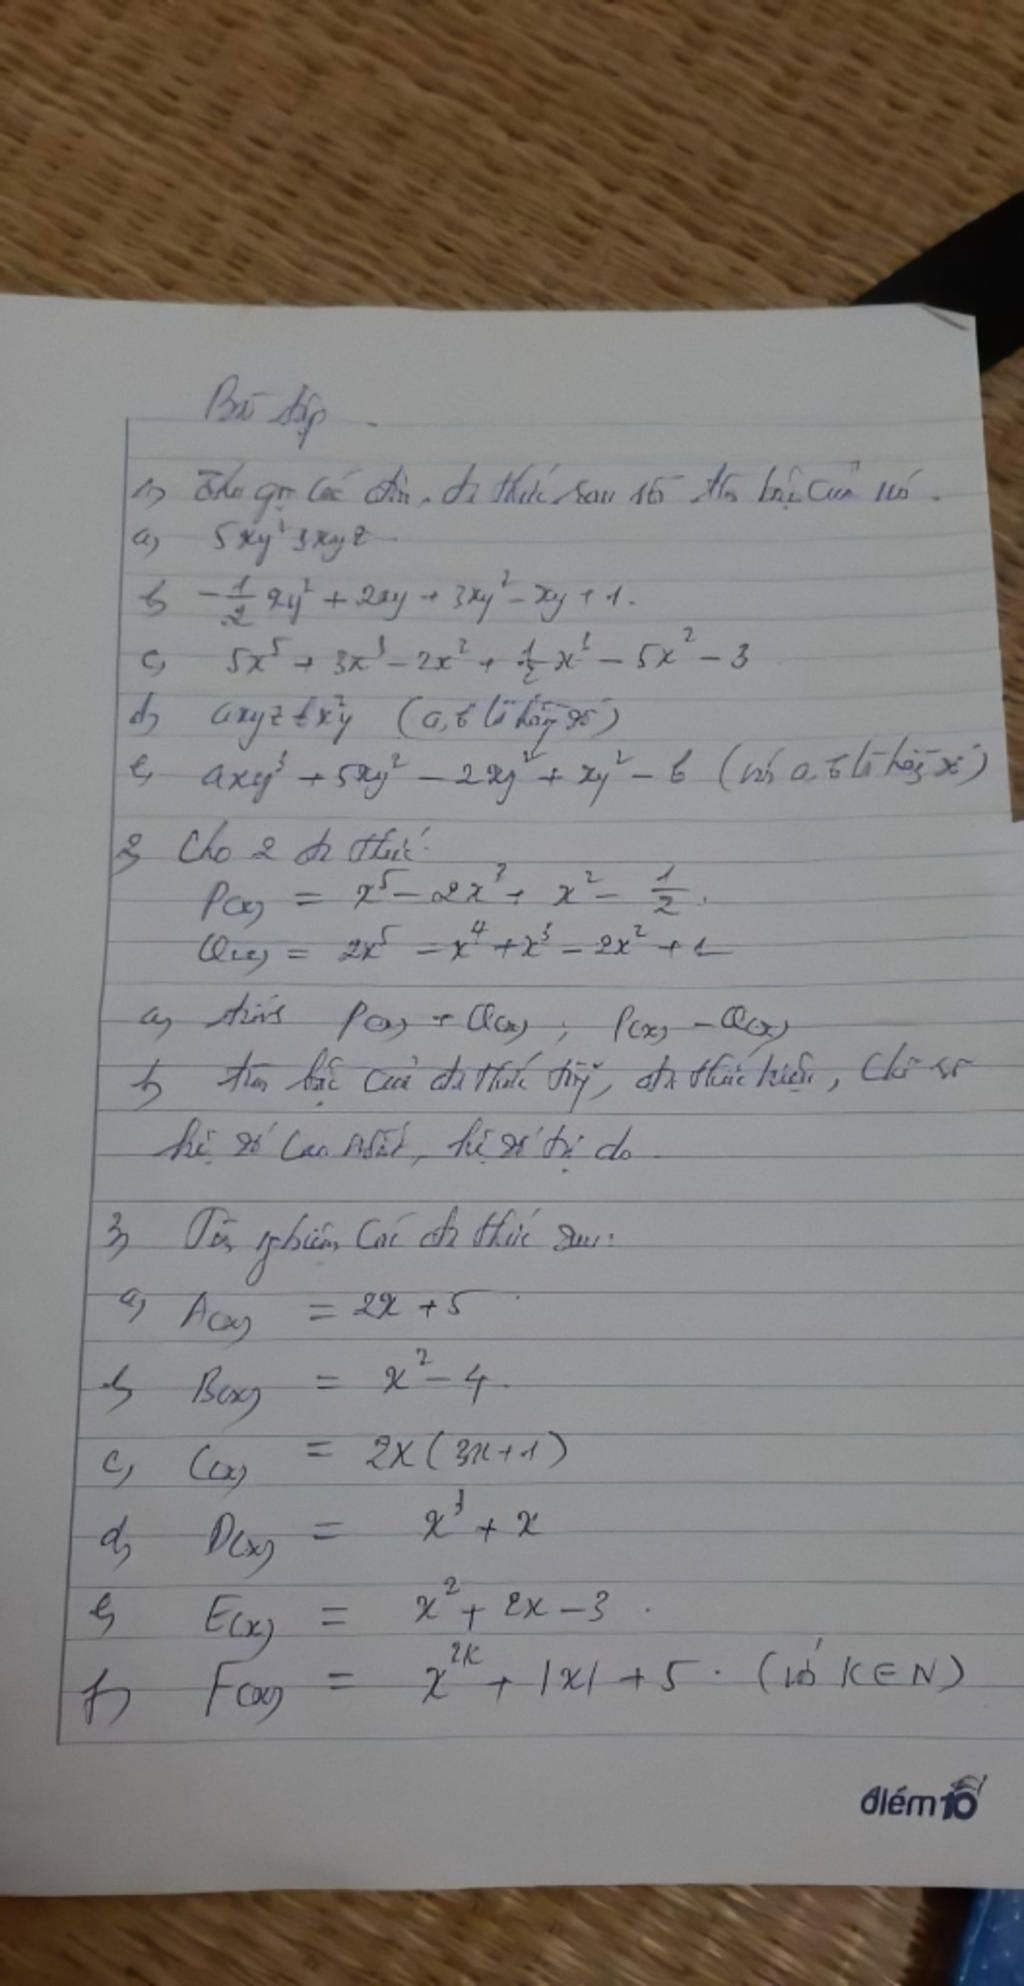 Bài tập
1, Thu gọn các đơn, đa thức sau rồi tìm bậc của nó.
a, 5xy³3xyz
b, -1/2 xy² + 2xy + 3xy² - xy + 1.
c, 5x⁵ + 3x³ - 2x² + 1/2 x³ - 5x² - 3
d, axyz bx²y (a, b là hằng số)
e, axy³ + 5xy² - 2xy² + xy² - b (với a, b là hằng số)
2, Cho 2 đa thức:
P(x) = x⁵ - 2x³ + x² - 1/2.
Q(x) = 2x⁵ - x⁴ + x³ - 2x² + 1
a, tính P(x) + Q(x) ; P(x) - Q(x)
b, tìm bậc của đa thức tổng, đa thức hiệu, chỉ rõ
hệ số cao nhất, hệ số tự do.
3, Tìm nghiệm các đa thức sau:
a, A(x) = 2x + 5
b, B(x) = x² - 4.
c, C(x) = 2x(3x+1)
d, D(x) = x³ + x
e, E(x) = x² + 2x - 3.
f, F(x) = x²ᴷ + |x| + 5. (với K ∈ N)
điểm10